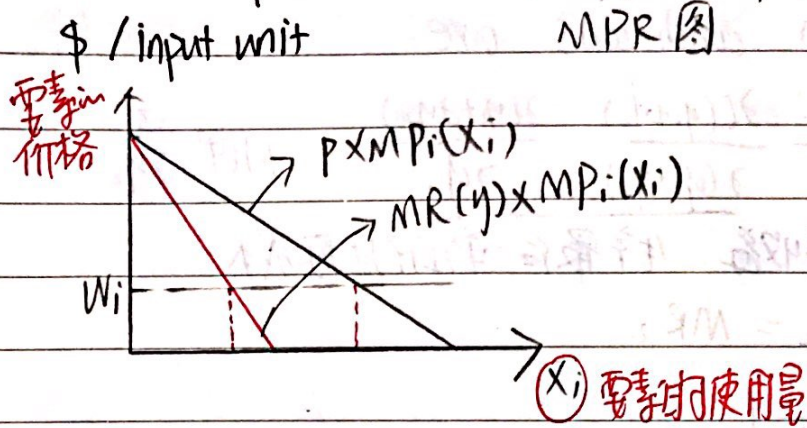 $ / input unit
MPR 图
要素in
价格
P×MPi(Xi)
MR(y)×MPi(Xi)
Wi
Xi 要素的使用量